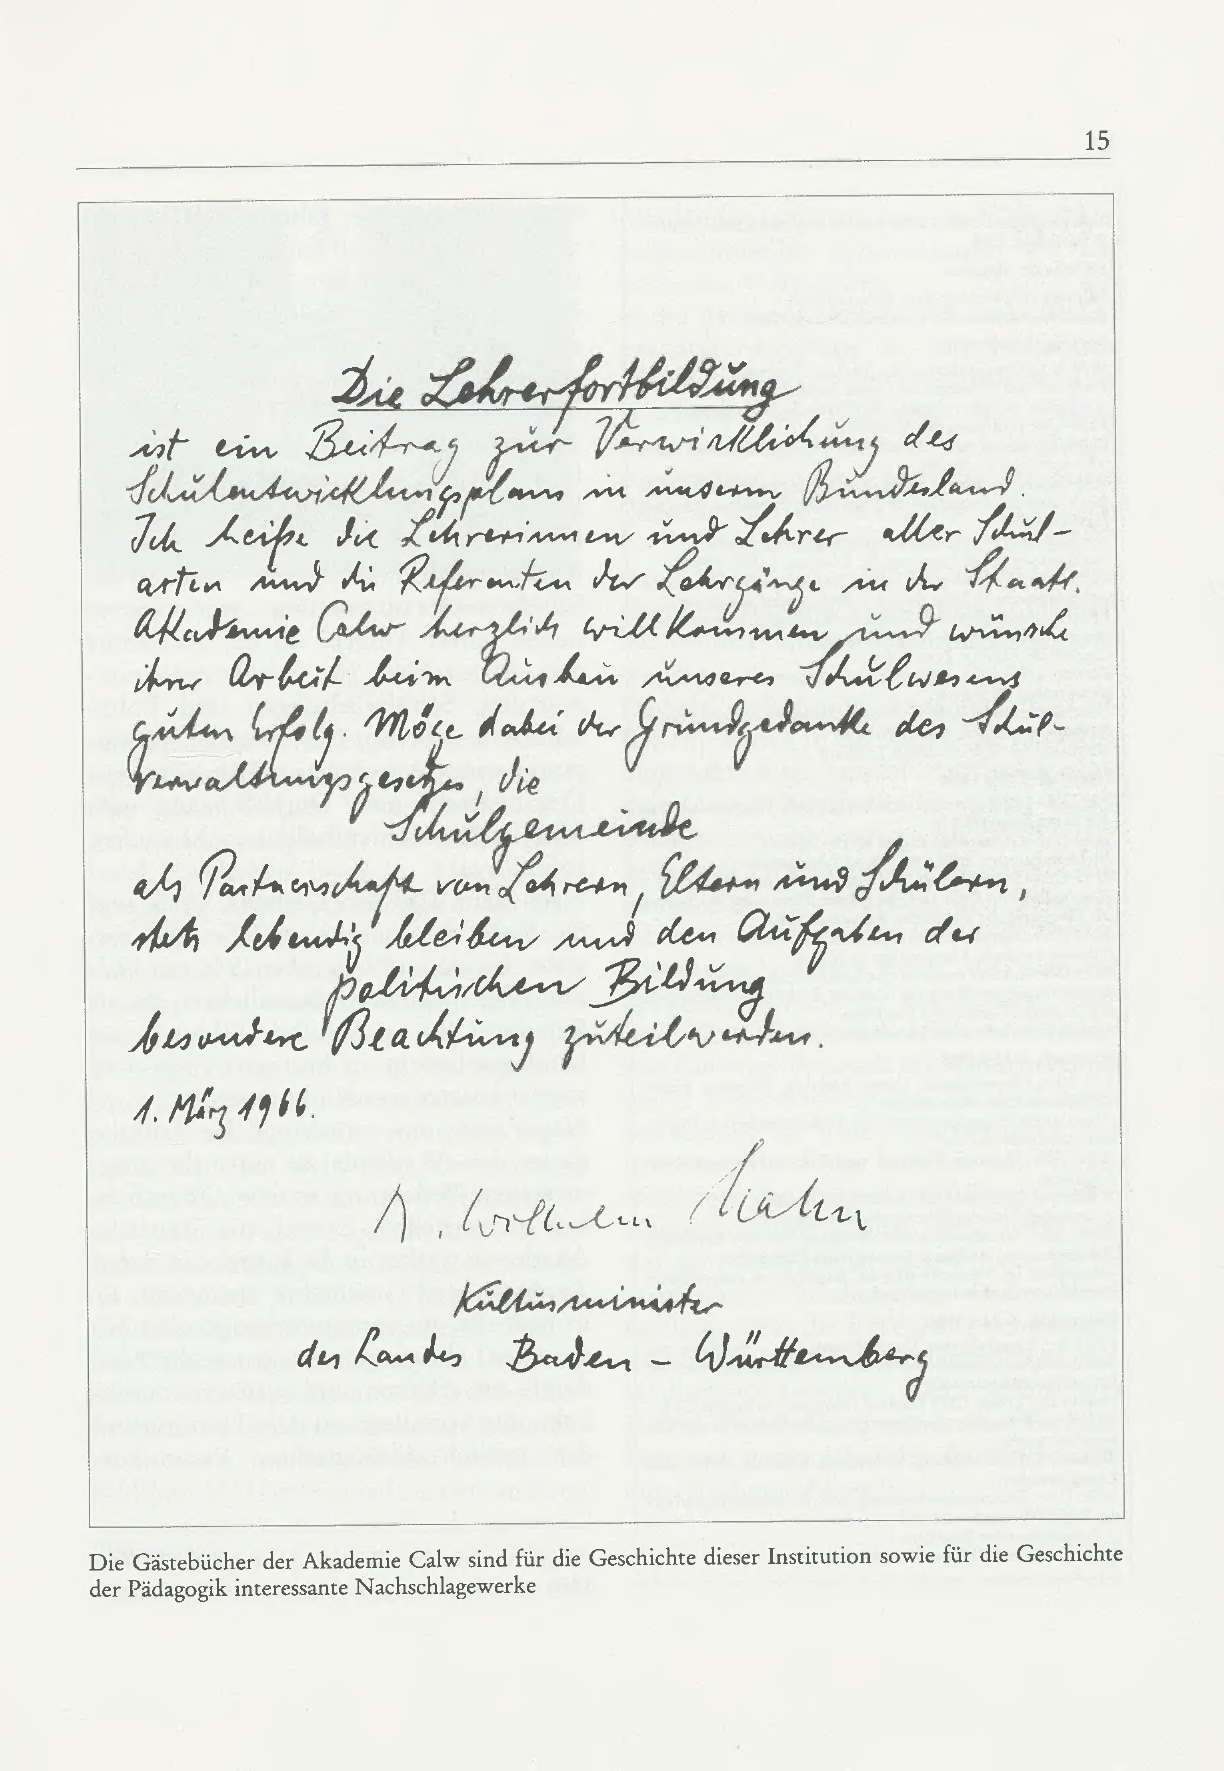 15
Die Lehrerfortbildung
ist ein Beitrag zur Verwirklichung des
Schulentwicklungsplans in unserm Bundesland.
Ich heiße die Lehrerinnen und Lehrer aller Schul-
arten und die Referenten der Lehrgänge in der Staatl.
Akademie Calw herzlich willkommen und wünsche
ihrer Arbeit beim Ausbau unseres Schulwesens
guten Erfolg. Möge dabei der Grundgedanke des Schul-
verwaltungsgesetzes, die
Schulgemeinde
als Partnerschaft von Lehrern, Eltern und Schülern,
stets lebendig bleiben und den Aufgaben der
politischen Bildung
besondere Beachtung zuteilwerden.
1. März 1966.
Wilhelm Hahn
Kultusminister
des Landes Baden - Württemberg
Die Gästebücher der Akademie Calw sind für die Geschichte dieser Institution sowie für die Geschichte
der Pädagogik interessante Nachschlagewerke